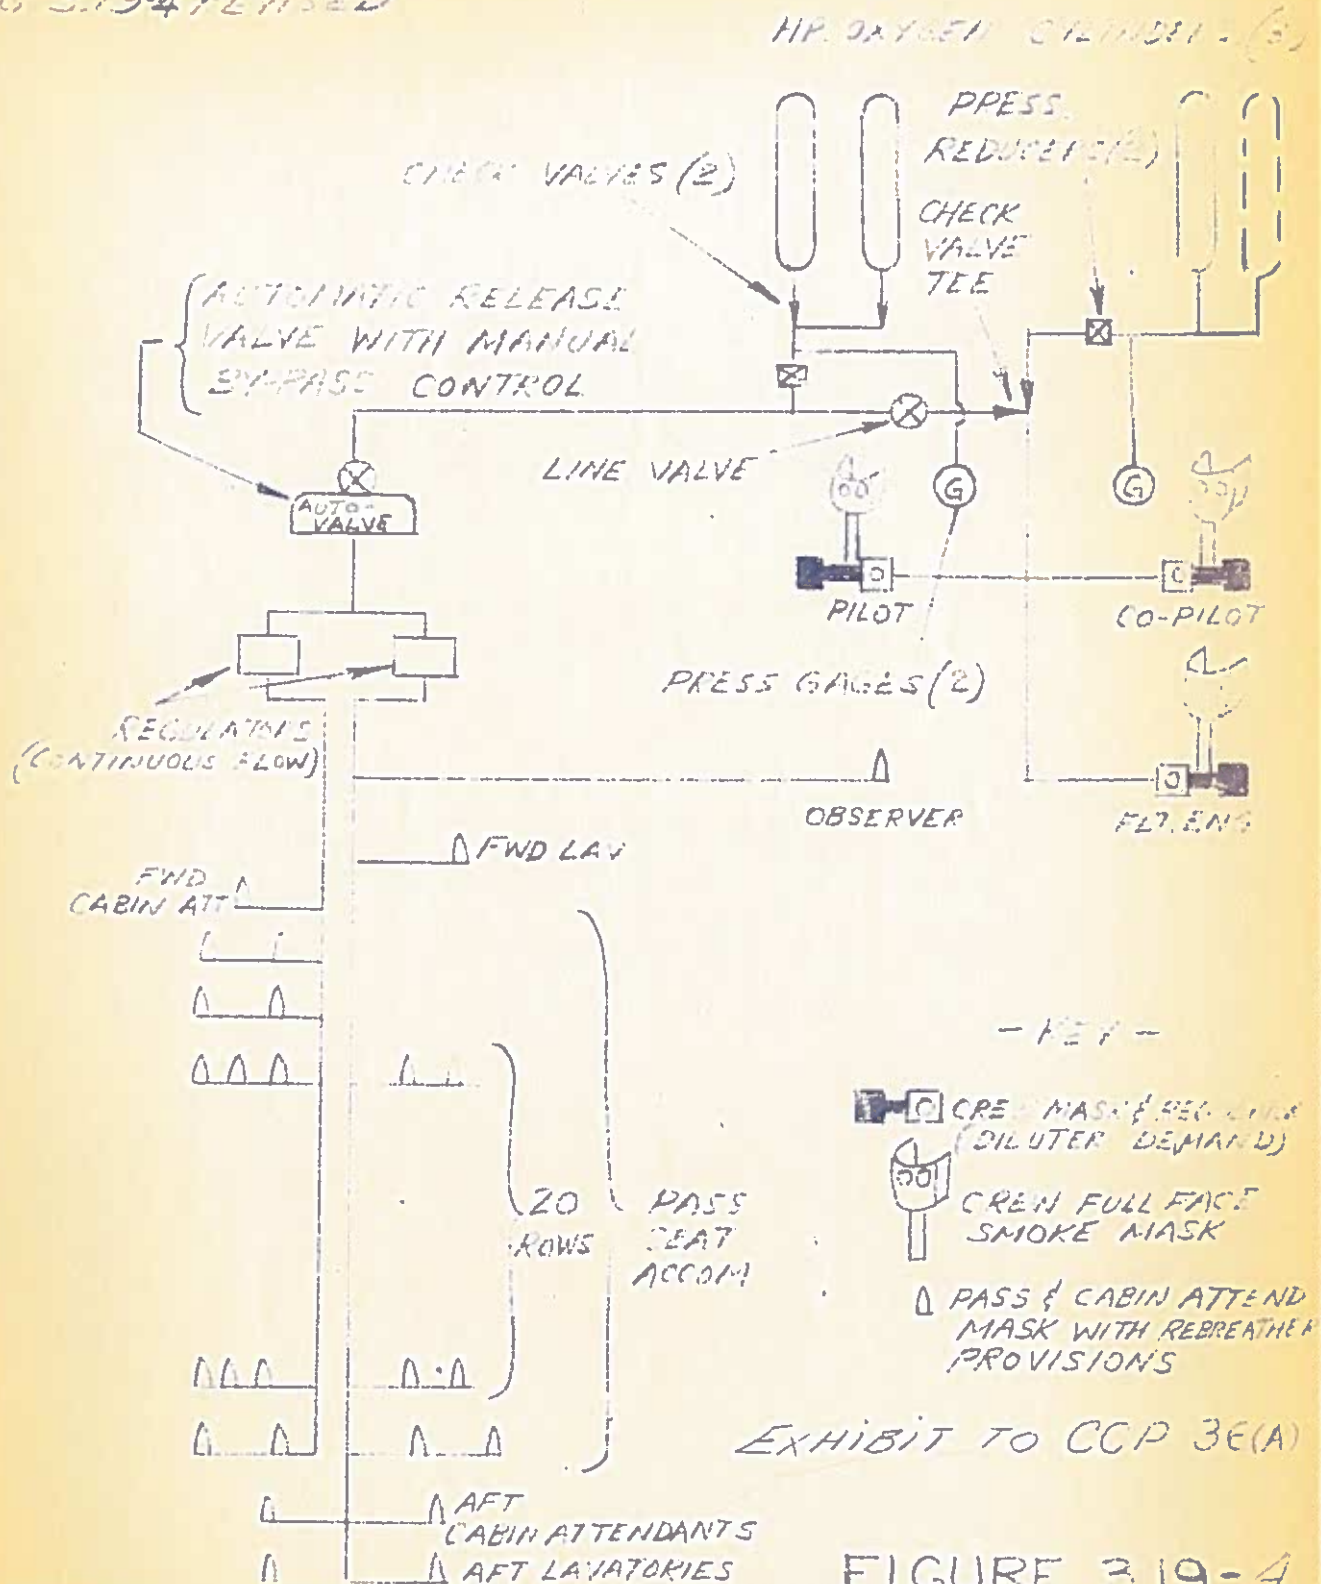 HP OXYGEN CYLINDERS (3)
PRESS.
REDUCERS (2)
CHECK VALVES (2)
CHECK
VALVE
TEE
AUTOMATIC RELEASE
VALVE WITH MANUAL
BY-PASS CONTROL
LINE VALVE
G
G
AUTO-
VALVE
PILOT
CO-PILOT
PRESS GAGES (2)
REGULATORS
(CONTINUOUS FLOW)
OBSERVER
FLT. ENG
FWD LAV
FWD
CABIN ATT
- KEY -
CREW MASK &
(DILUTER DEMAND)
CREW FULL FACE
SMOKE MASK
20
ROWS
PASS
SEAT
ACCOM
PASS & CABIN ATTEND
MASK WITH REBREATHER
PROVISIONS
EXHIBIT TO CCP
AFT
CABIN ATTENDANTS
AFT LAVATORIES
FIGURE 3.19-4